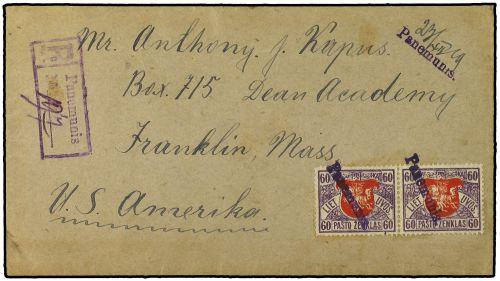 Mr. Anthony J. Kapus.
Box. 715 Dean Academy
Franklin, Mass
U. S. Amerika.
Panemunis.
Panemunis
R
No
60 60
LIETUVOS
60 PAŠTO ŽENKLAS 60
60 60
LIETUVOS
60 PAŠTO ŽENKLAS 60
Panemunis
Panemunis